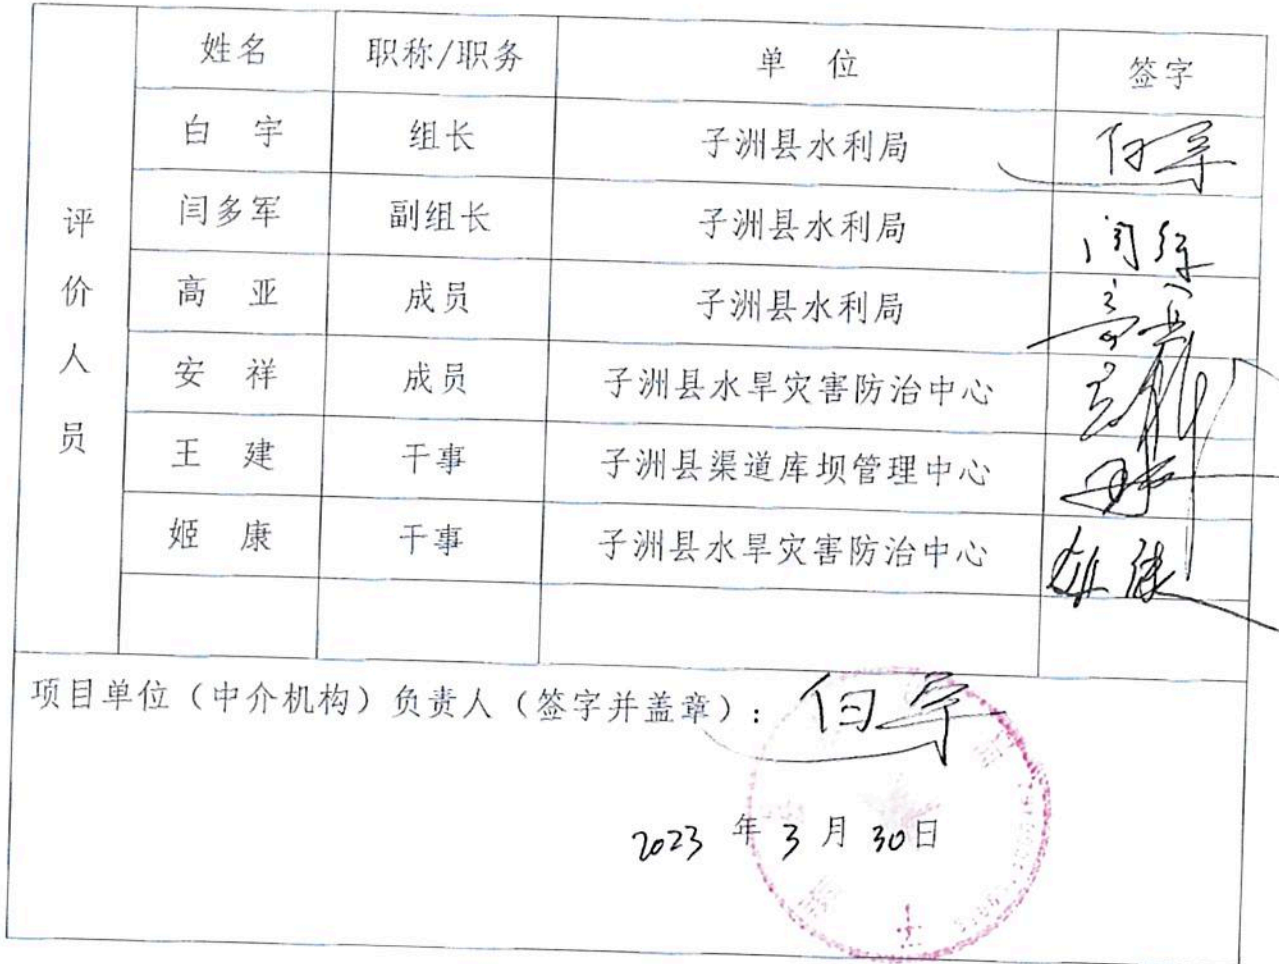 姓名 职称/职务 单 位 签字
白 宇 组长 子洲县水利局 白宇
闫多军 副组长 子洲县水利局
高 亚 成员 子洲县水利局
安 祥 成员 子洲县水旱灾害防治中心
王 建 干事 子洲县渠道库坝管理中心
姬 康 干事 子洲县水旱灾害防治中心 姬康
评价人员
项目单位（中介机构）负责人（签字并盖章）：白宇
2023 年 3 月 30日